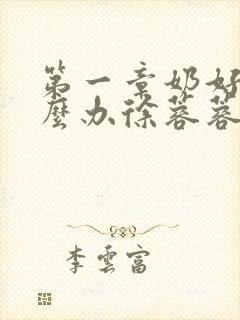 第一章奶好
麼办徐蓉蓉
李雲富